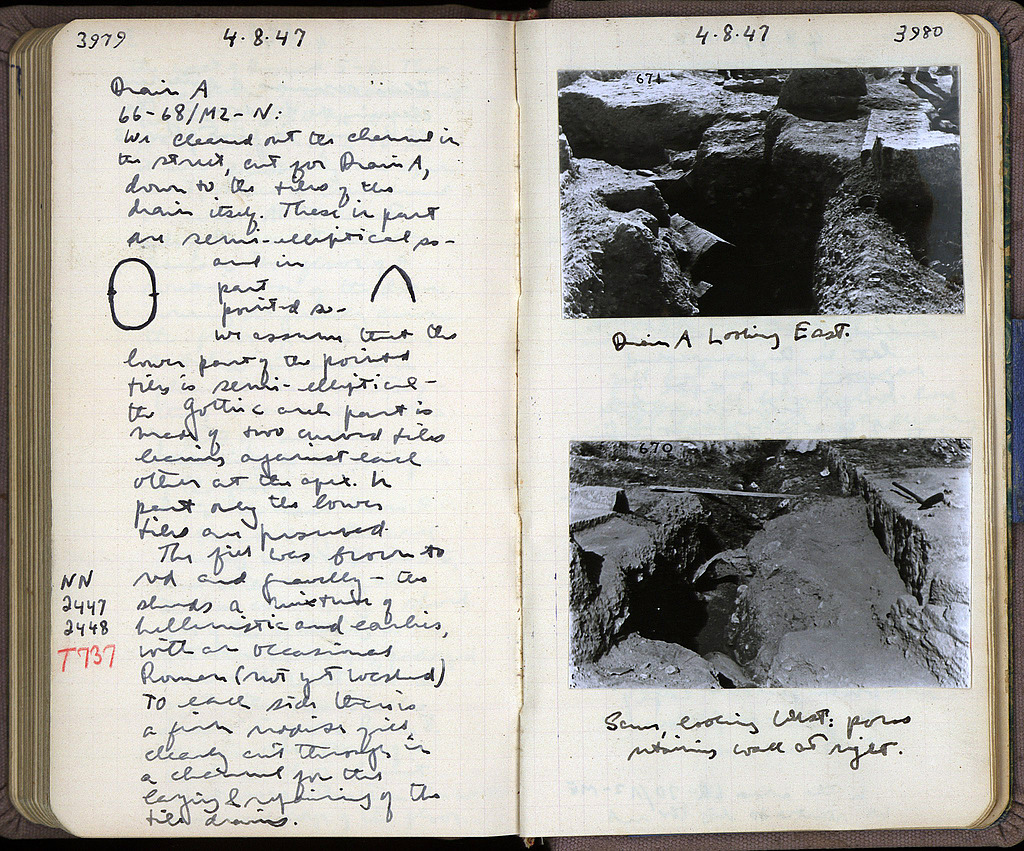 3979
4·8·47
Drain A
66-68/MZ-N:
We cleaned out the channel in
the street, cut for Drain A,
down to the tiles of the
drain itself. These in part
are semi-elliptical so-
and in
part
pointed so-
We assume that the
lower part of the pointed
tiles is semi-elliptical-
the Gothic arch part is
made of two curved tiles
leaning against each
other at the apex. In
part only the lower
tiles are preserved.
The fill was brown to
red and gravelly - the
sherds a mixture of
hellenistic and earlier,
with an occasional
Roman (not yet washed)
To each side there is
a firm reddish fill,
clearly cut through in
a channel for the
laying & repairing of the
tile drains.
NN
2447
2448
T737
4·8·47
3980
671
Drain A Looking East.
670
Same, looking West: poros
retaining wall at right.